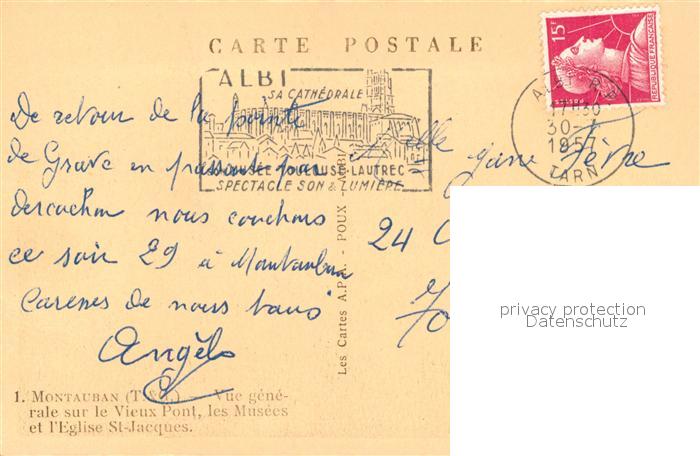 CARTE POSTALE
15F
REPUBLIQUE FRANÇAISE
POSTES
ALBI
SA CATHÉDRALE
MUSÉE TOULOUSE-LAUTREC
SPECTACLE SON & LUMIÈRE
ALBI R.P.
17H30
30-
1957
TARN
De retour de la pointe
de Grave en passant par
d'arcachon nous couchons
ce soir 29 à Montauban
Caresses de nous tous
Angèle
Melle Jane Fèvre
24
Les Cartes A.P.A. - POUX - ALBI
1. MONTAUBAN (T.-&-G.) — Vue géné-
rale sur le Vieux Pont, les Musées
et l'Eglise St-Jacques.
privacy protection
Datenschutz